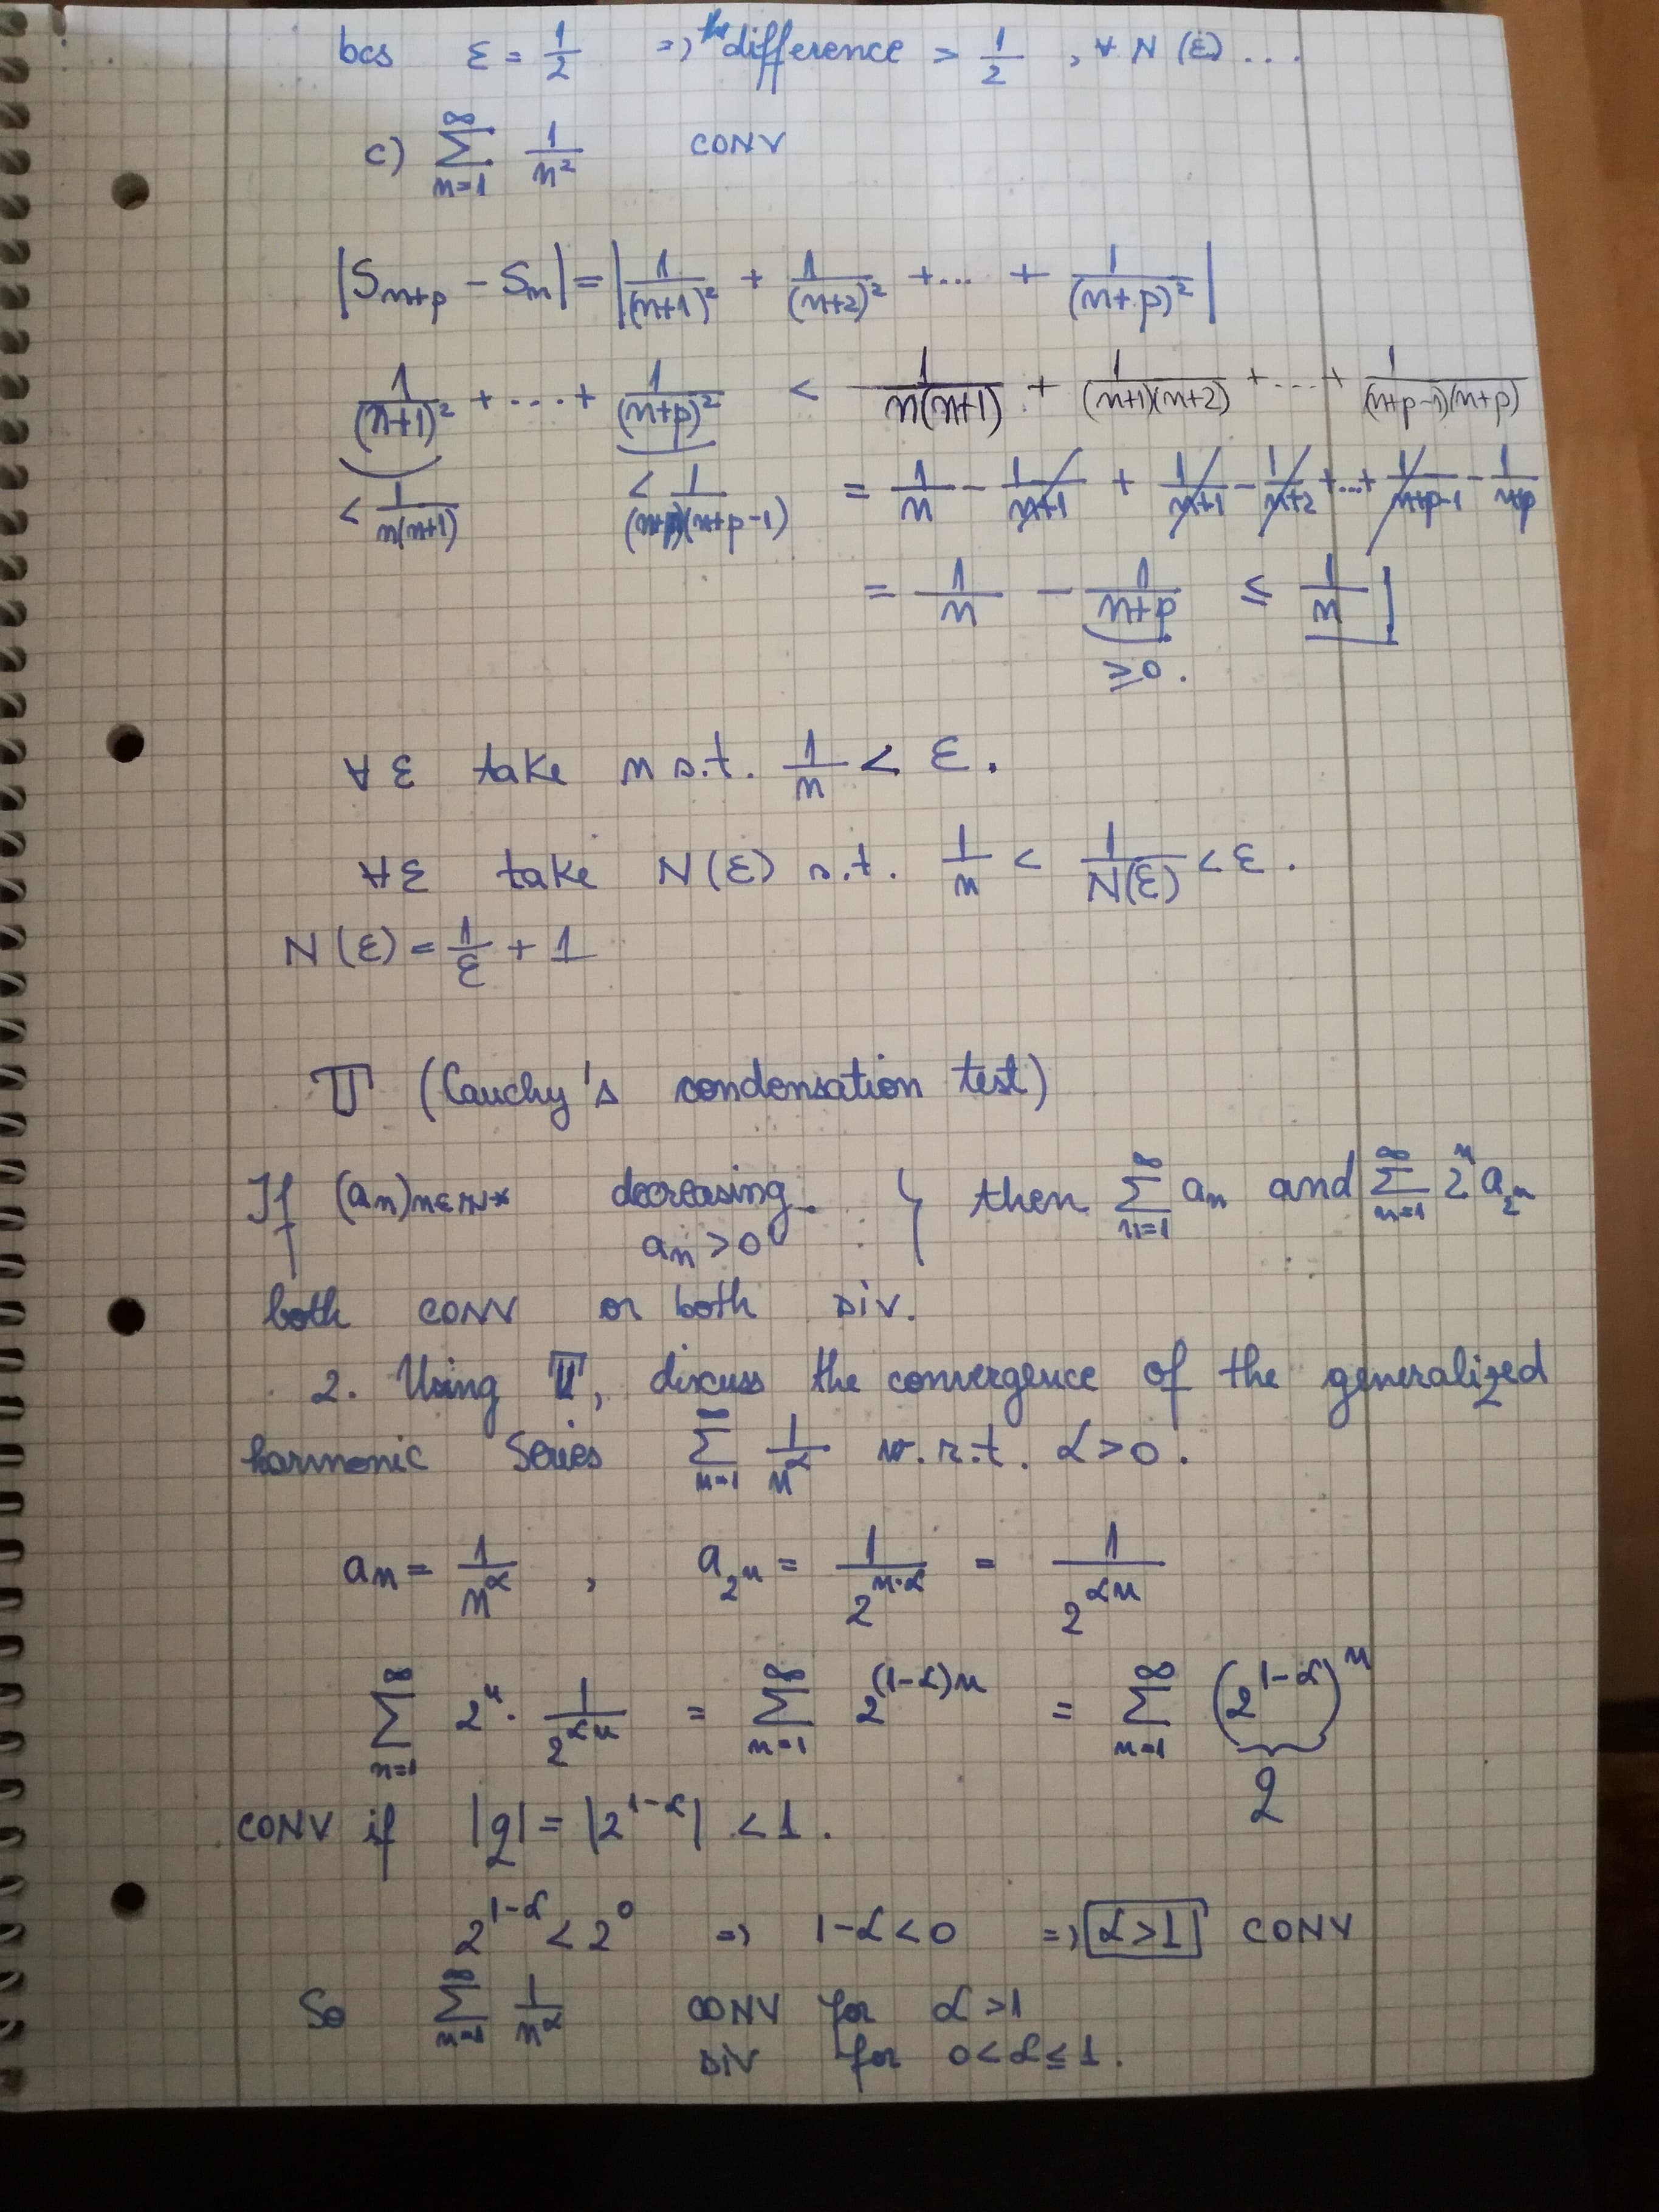 bcs ε = 1/2 => the difference > 1/2 , ∀ N(ε) ...
c) ∑_{n=1}^{∞} 1/n² CONV
|S_{n+p} - S_n| = |1/(n+1)² + 1/(n+2)² + ... + 1/(n+p)²|
1/(n+1)² + ... + 1/(n+p)² < 1/(n(n+1)) + 1/((n+1)(n+2)) + ... + 1/((n+p-1)(n+p))
< 1/(n(n+1)) < 1/((n+p)(n+p-1)) = 1/n - 1/(n+1) + 1/(n+1) - 1/(n+2) + ... + 1/(n+p-1) - 1/(n+p)
= 1/n - 1/(n+p) ≤ 1/n
≥0.
∀ ε take n s.t. 1/n < ε.
∀ε take N(ε) s.t. 1/n < 1/N(ε) < ε.
N(ε) = 1/ε + 1
T (Cauchy's condensation test)
If (a_n)_{n∈N*} decreasing. } then ∑_{n=1}^{∞} a_n and ∑_{n=1}^{∞} 2^n a_{2^n}
a_n > 0
both CONV or both DIV.
2. Using T, discuss the convergence of the generalized
harmonic Series ∑_{n=1}^{∞} 1/n^α w.r.t. α>0.
a_n = 1/n^α , a_{2^n} = 1/2^{n·α} = 1/2^{αn}
∑_{n=1}^{∞} 2^n · 1/2^{αn} = ∑_{n=1}^{∞} 2^{(1-α)n} = ∑_{n=1}^{∞} (2^{1-α})^n
q
CONV if |q| = |2^{1-α}| < 1.
2^{1-α} < 2^0 => 1-α<0 => α>1 CONV
So ∑_{n=1}^{∞} 1/n^α CONV for α>1
DIV for 0<α≤1.